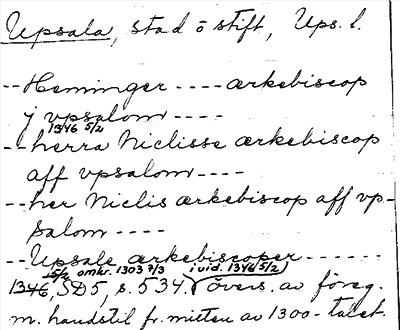 Upsala, stad o stift, Ups. l.
--Heminger ---- ærkebiscop
j vpsalom ----
1346 5/2
--herra Niclisse ærkebiscop
aff vpsalom ----
--her Niclis ærkebiscop aff vp-
salom ----
--Upsale ærkebiscoper ------
5/2 omkr. 1303 7/3 i vid. 1346 5/2
1346, SD5, s. 534. övers. av föreg.
m. handstil fr. mitten av 1300-talet.